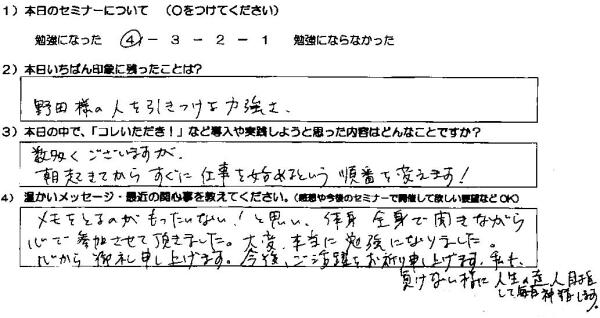 1）本日のセミナーについて　（○をつけてください）
勉強になった　④－３－２－１　勉強にならなかった
2）本日いちばん印象に残ったことは？
野田様の人を引きつける力強さ、
3）本日の中で、「コレいただき！」など導入や実践しようと思った内容はどんなことですか？
数多くございますが、
朝起きてからすぐに仕事を始めるという順番を変えます！
4）温かいメッセージ・最近の関心事を教えてください。（感想や今後のセミナーで開催して欲しい要望などOK）
メモをとるのがもったいない！と思い、全身で聞きながら
心で参加させて頂きました。大変、本当に勉強になりました。
心から御礼申し上げます。今後、ご活躍をお祈り申し上げます。私も、
負けない様に人生の達人目指
して毎日します。